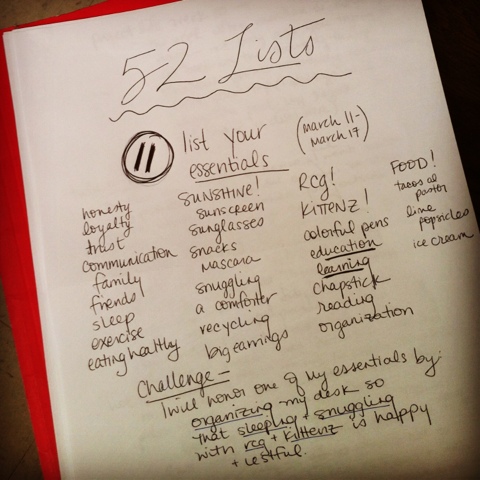 52 Lists
11
list your
essentials
(march 11-
march 17)
honesty
loyalty
trust
communication
family
friends
sleep
exercise
eating healthy
SUNSHINE!
sunscreen
sunglasses
snacks
mascara
snuggling
a comforter
recycling
big earrings
RCG!
KITTENZ!
colorful pens
education
learning
chapstick
reading
organization
FOOD!
tacos al
pastor
lime
popsicles
ice cream
Challenge-
I will honor one of my essentials by:
organizing my desk so
that sleeping + snuggling
with rcg + kittenz is happy
+ restful.